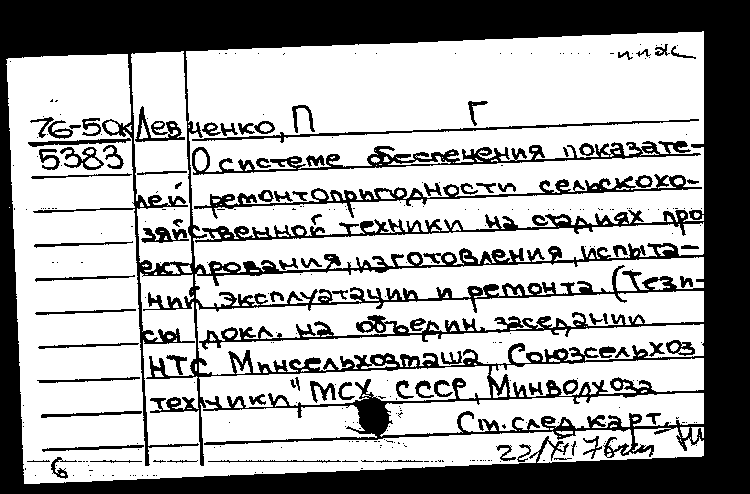 76-50к Левченко, П Г
5383 О системе обеспечения показате-
лей ремонтопригодности сельскохо-
зяйственной техники на стадиях про
ектирования, изготовления, испыта-
ний, эксплуатации и ремонта. (Тези-
сы докл. на объедин. заседании
НТС Минсельхозмаша, „Союзсельхоз
техники", МСХ СССР, Минводхоза
См. след. карт.
22/XII 76
6